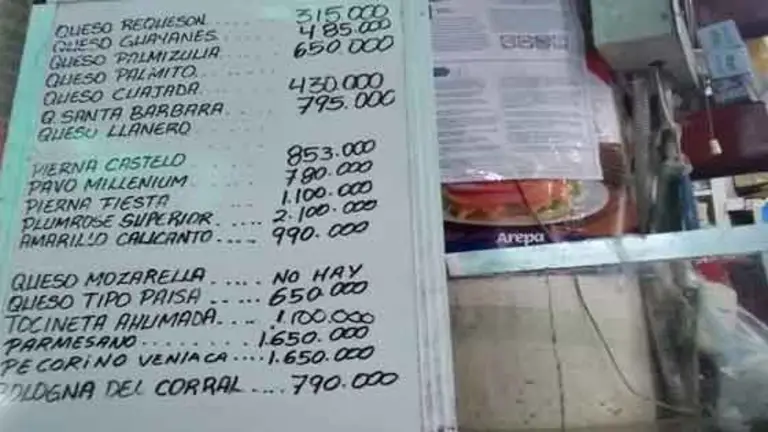 QUESO REQUESON ..... 315.000
QUESO GUAYANES ..... 485.000
QUESO PALMIZULIA .... 650.000
QUESO PALMITO .....
QUESO CUAJADA ..... 430.000
Q. SANTA BARBARA .... 795.000
QUESO LLANERO
PIERNA CASTELO ..... 853.000
PAVO MILLENIUM ..... 780.000
PIERNA FIESTA ..... 1.100.000
PLUMROSE SUPERIOR ..... 2.100.000
AMARILLO CALICANTO .... 990.000
QUESO MOZARELLA ..... NO HAY
QUESO TIPO PAISA ..... 650.000
TOCINETA AHUMADA .... 1.100.000
PARMESANO ........ 1.650.000
PECORINO VENIACA .... 1.650.000
BOLOGNA DEL CORRAL .... 790.000
Arepa